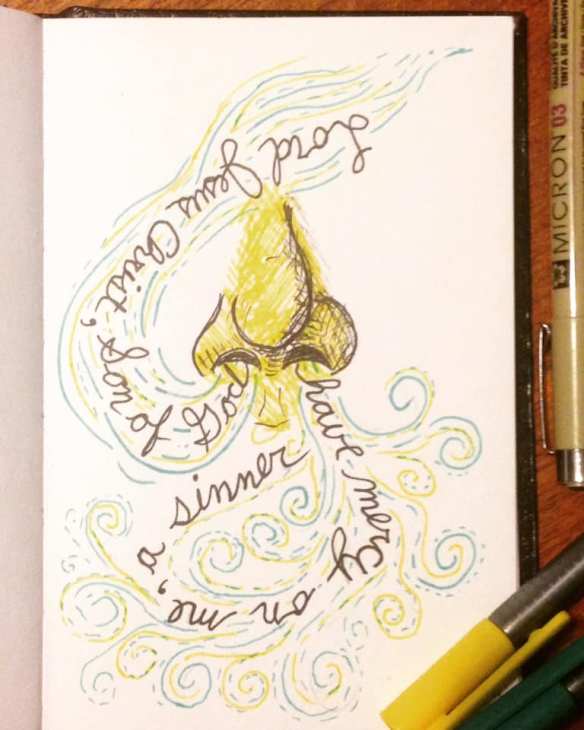 Lord Jesus Christ, Son of God
have mercy on me,
a sinner
MICRON 03
TINTA DE ARCHIV